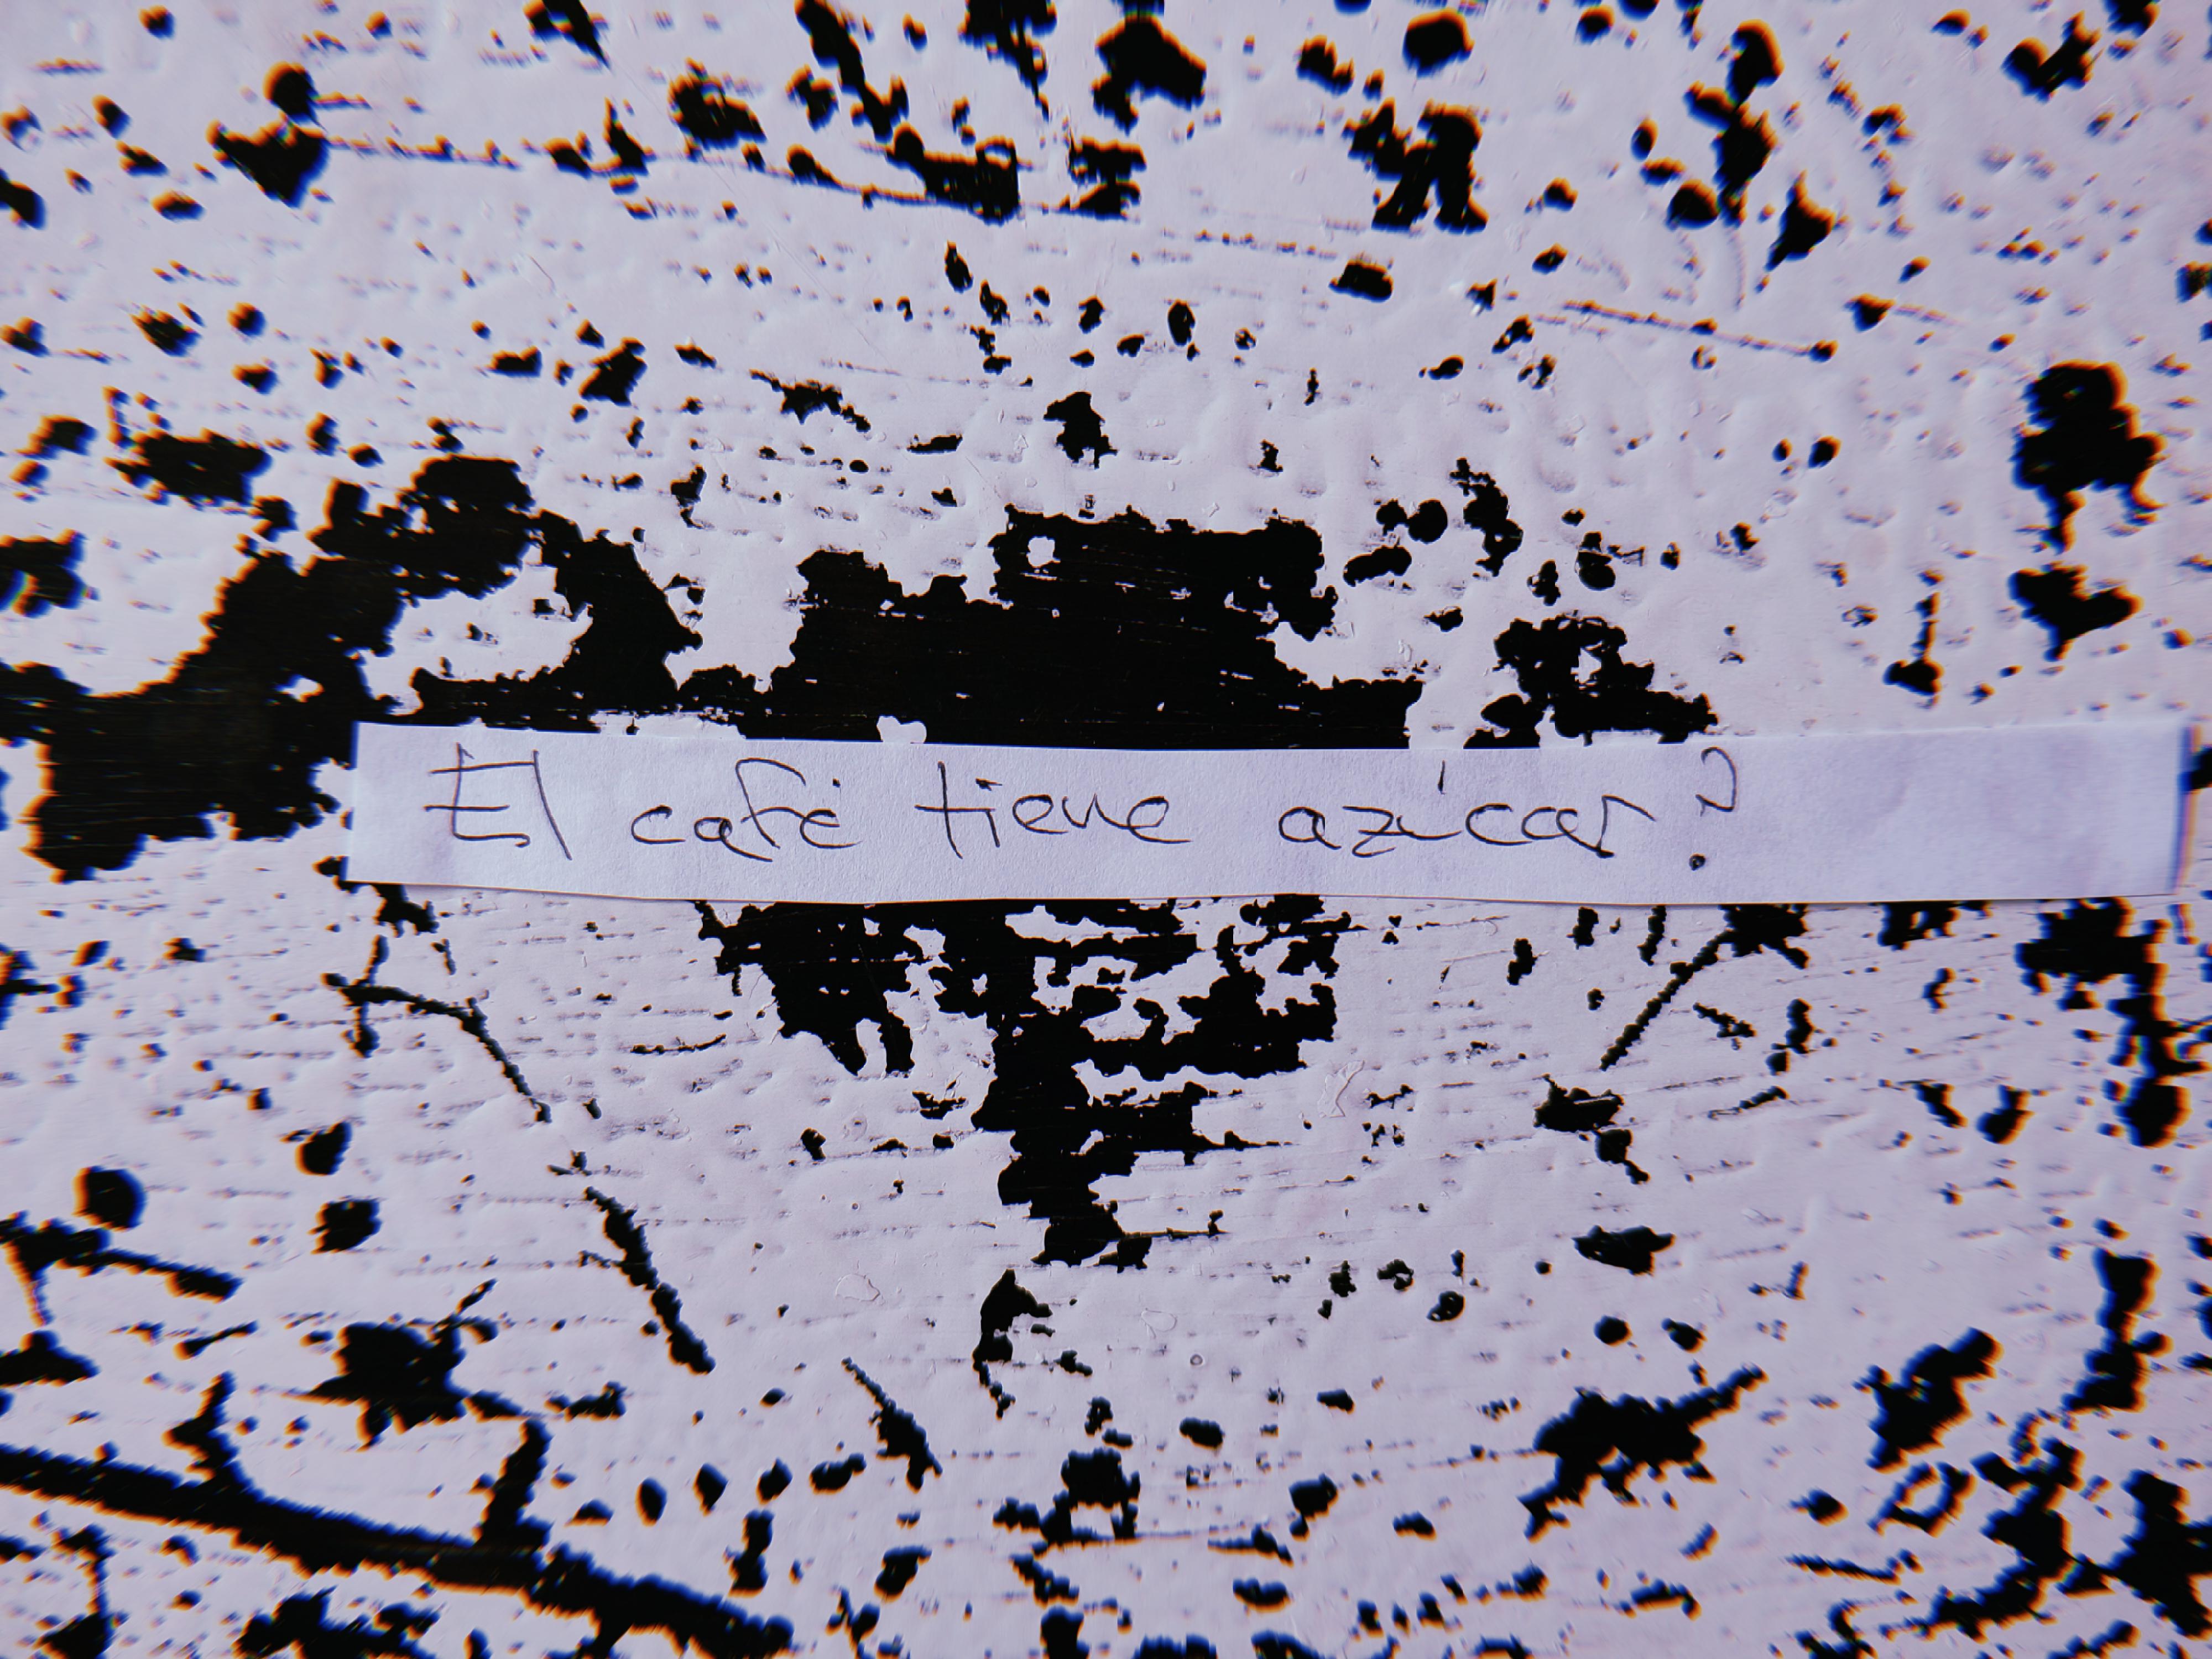 El café tiene azúcar?